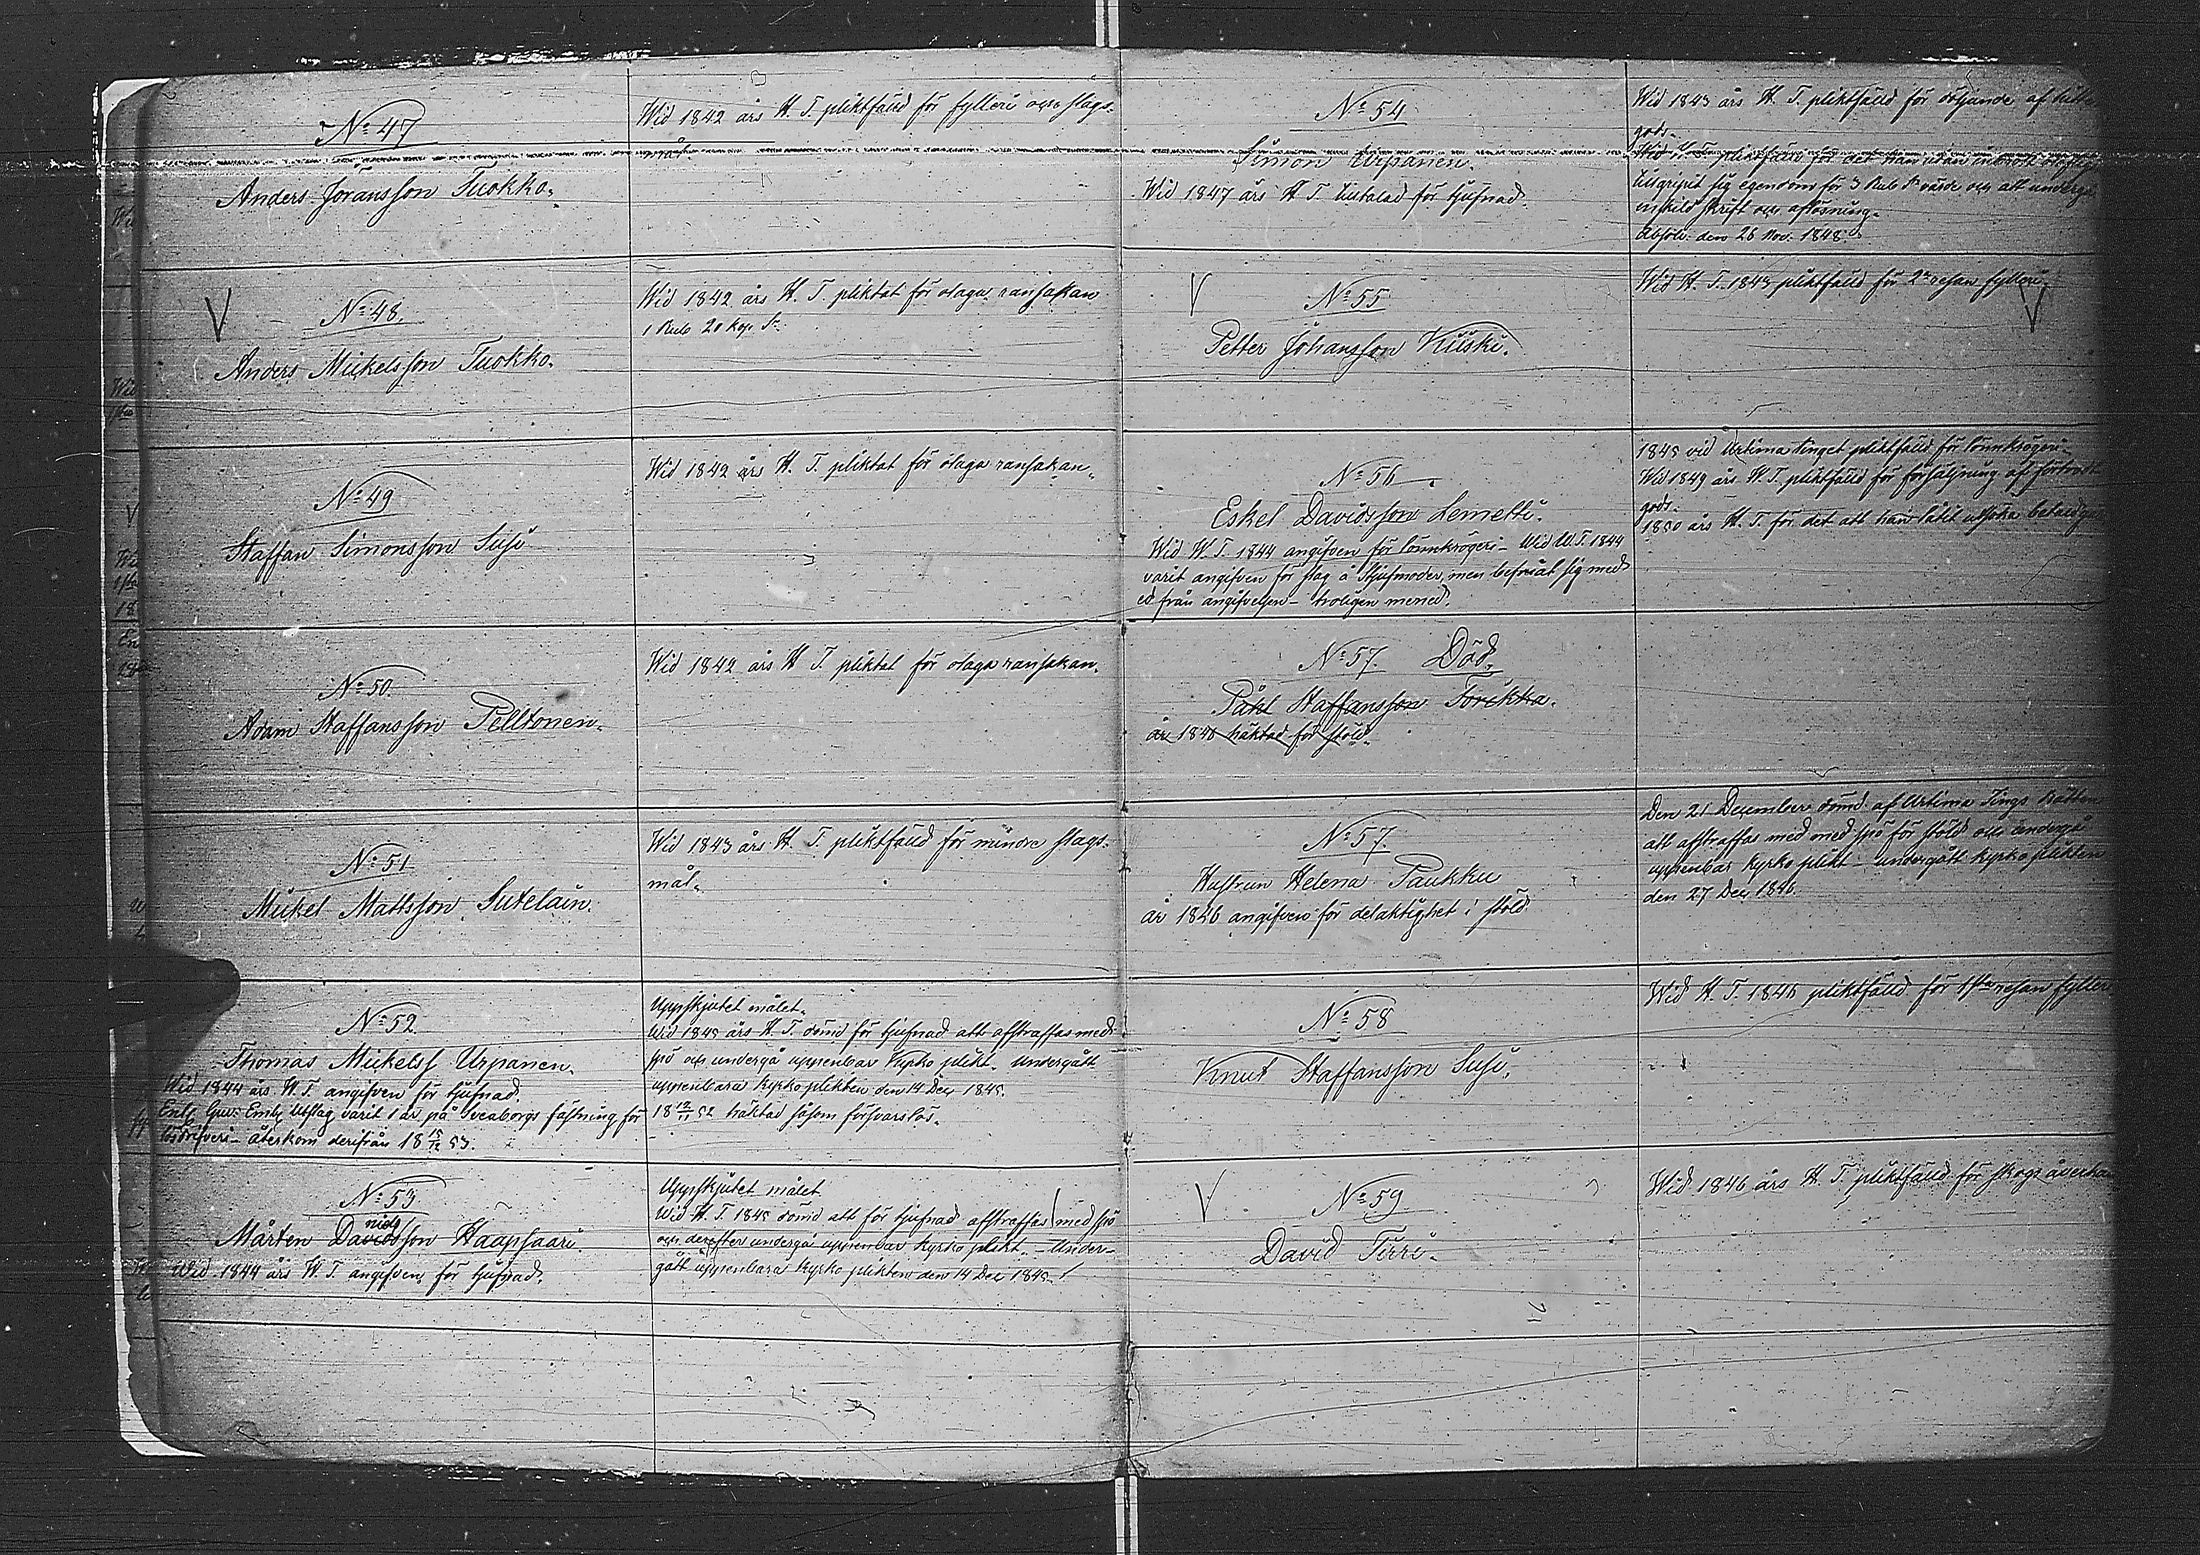 No 47
Anders Joransson Tuokko.
Wid 1842 års H. T. pliktfälld för fylleri och slags-
mål
No 48.
Anders Mickelsson Tuokko.
Wid 1842 års H. T. pliktat för olaga ransakan
1 Rub 20 kop. Sr
No 49
Staffan Simonsson Susi
Wid 1842 års H. T. pliktat för olaga ransakan.
No 50
Adam Staffansson Pelltonen.
Wid 1842 års H T. pliktat för olaga ransakan.
No 51
Mickel Mattsson Sutelain.
Wid 1843 års H. T. pliktfälld för mindre slags-
mål.
No 52
Thomas Mickelss Urpanen.
Wid 1844 års W. T. angifven för tjufnad.
Enl. Guv. Emb. Utslag varit 1 år på Sveaborgs fästning för
lösdrifveri - återkom derifrån 18 15/12 53.
Uppskjutet målet.
Wid 1845 års H. T. dömd för tjufnad att afstraffas med
spö och undergå uppenbar Kyrko plikt. Undergått
uppenbara kyrko plikten den 14 Dec 1845.
18 19/11 52 häktad såsom försvarslös.
No 53
Mårten Davidsson Haapsaari.
Wid 1844 års W. T. angifven för tjufnad.
Uppskjutet målet
Wid H. T. 1845 dömd att för tjufnad afstraffas med spö
och derefter undergå uppenbar kyrko plikt. - Under-
gått uppenbara kyrko plikten den 14 Dec 1845.
No 54
Simon Urpanen.
Wid 1847 års H T. tilltalad för tjufnad.
Wid 1843 års H. T. pliktfälld för döljande af
gods.
Wid H. T. pliktfälld för det han utan
tillgripit sig egendom för 3 Rub Sr värde och att undergå
enskild skrift och aflösning.
Absolv. den 26 Nov. 1848
No 55
Petter Johansson Kiiski.
Wid H. T. 1843 pliktfälld för 2ra resan fylleri.
No 56
Eskel Davidsson Lemetti.
Wid W. T. 1844 angifven för lönnkrögeri - Wid W. T. 1844
varit angifven för slag å Stjufmoder, men befriat sig med
ed från angifvelsen - troligen mened.
1845 vid Urtima tinget pliktfälld för lönnkrögeri -
Wid 1849 års H. T. pliktfälld för försäljning af
gods.
1850 års H. T. för det att han låtit
No 57. Död.
Påhl Staffansson Torikka.
år 1846 häktad för stöld.
No 57.
Hustrun Helena Paukku
år 1846 angifven för delaktighet i stöld
Den 21 December dömd af Urtima Tings Rätten
att afstraffas med med spö för stöld och undergå
uppenbar kyrko plikt - undergått kyrko plikten
den 27 Dec 1846.
No 58
Knut Staffansson Susi.
Wid H. T. 1846 pliktfälld för 1sta resan fylleri
No 59.
David Tiiri.
Wid 1846 års H. T. pliktfälld för skogs